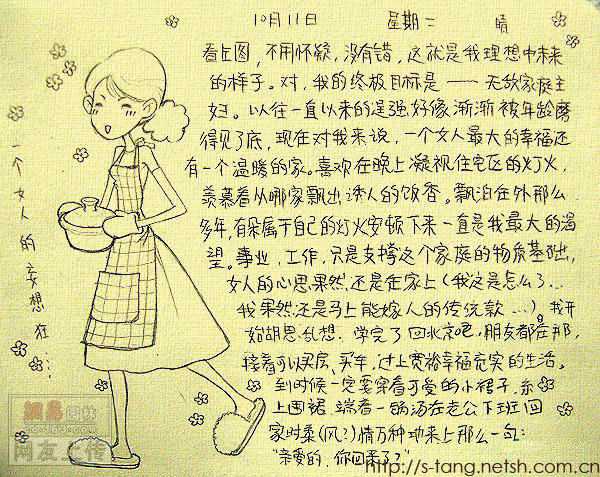 10月11日 星期二 晴
看上图,不用怀疑,没有错,这就是我理想中未来
的样子。对,我的终极目标是——无敌家庭主
妇。以往一直以来的逞强好像渐渐被年龄磨
得见了底,现在对我来说,一个女人最大的幸福还
有一个温暖的家。喜欢在晚上凝视住宅区的灯火,
羡慕着从哪家飘出诱人的饭香。飘泊在外那么
多年,有朵属于自己的灯火安顿下来一直是我最大的渴
望。事业,工作,只是支撑这个家庭的物质基础,
女人的心思果然还是在家上(我这是怎么了...
我果然还是马上能嫁人的传统款...)。我开
始胡思乱想.学完了回北京吧,朋友都在那,
接着可以买房、买车,过上宽裕幸福充实的生活。
到时候一定要穿着可爱的小裙子,系
上围裙.端着一锅汤在老公下班回
家时柔(风?)情万种地来上那么一句:
"亲爱的,你回来了?"
一个女人的妄想狂...
网易园林
网友上传
http://s-tang.netsh.com.cn
http://s-tang.netsh.com.cn